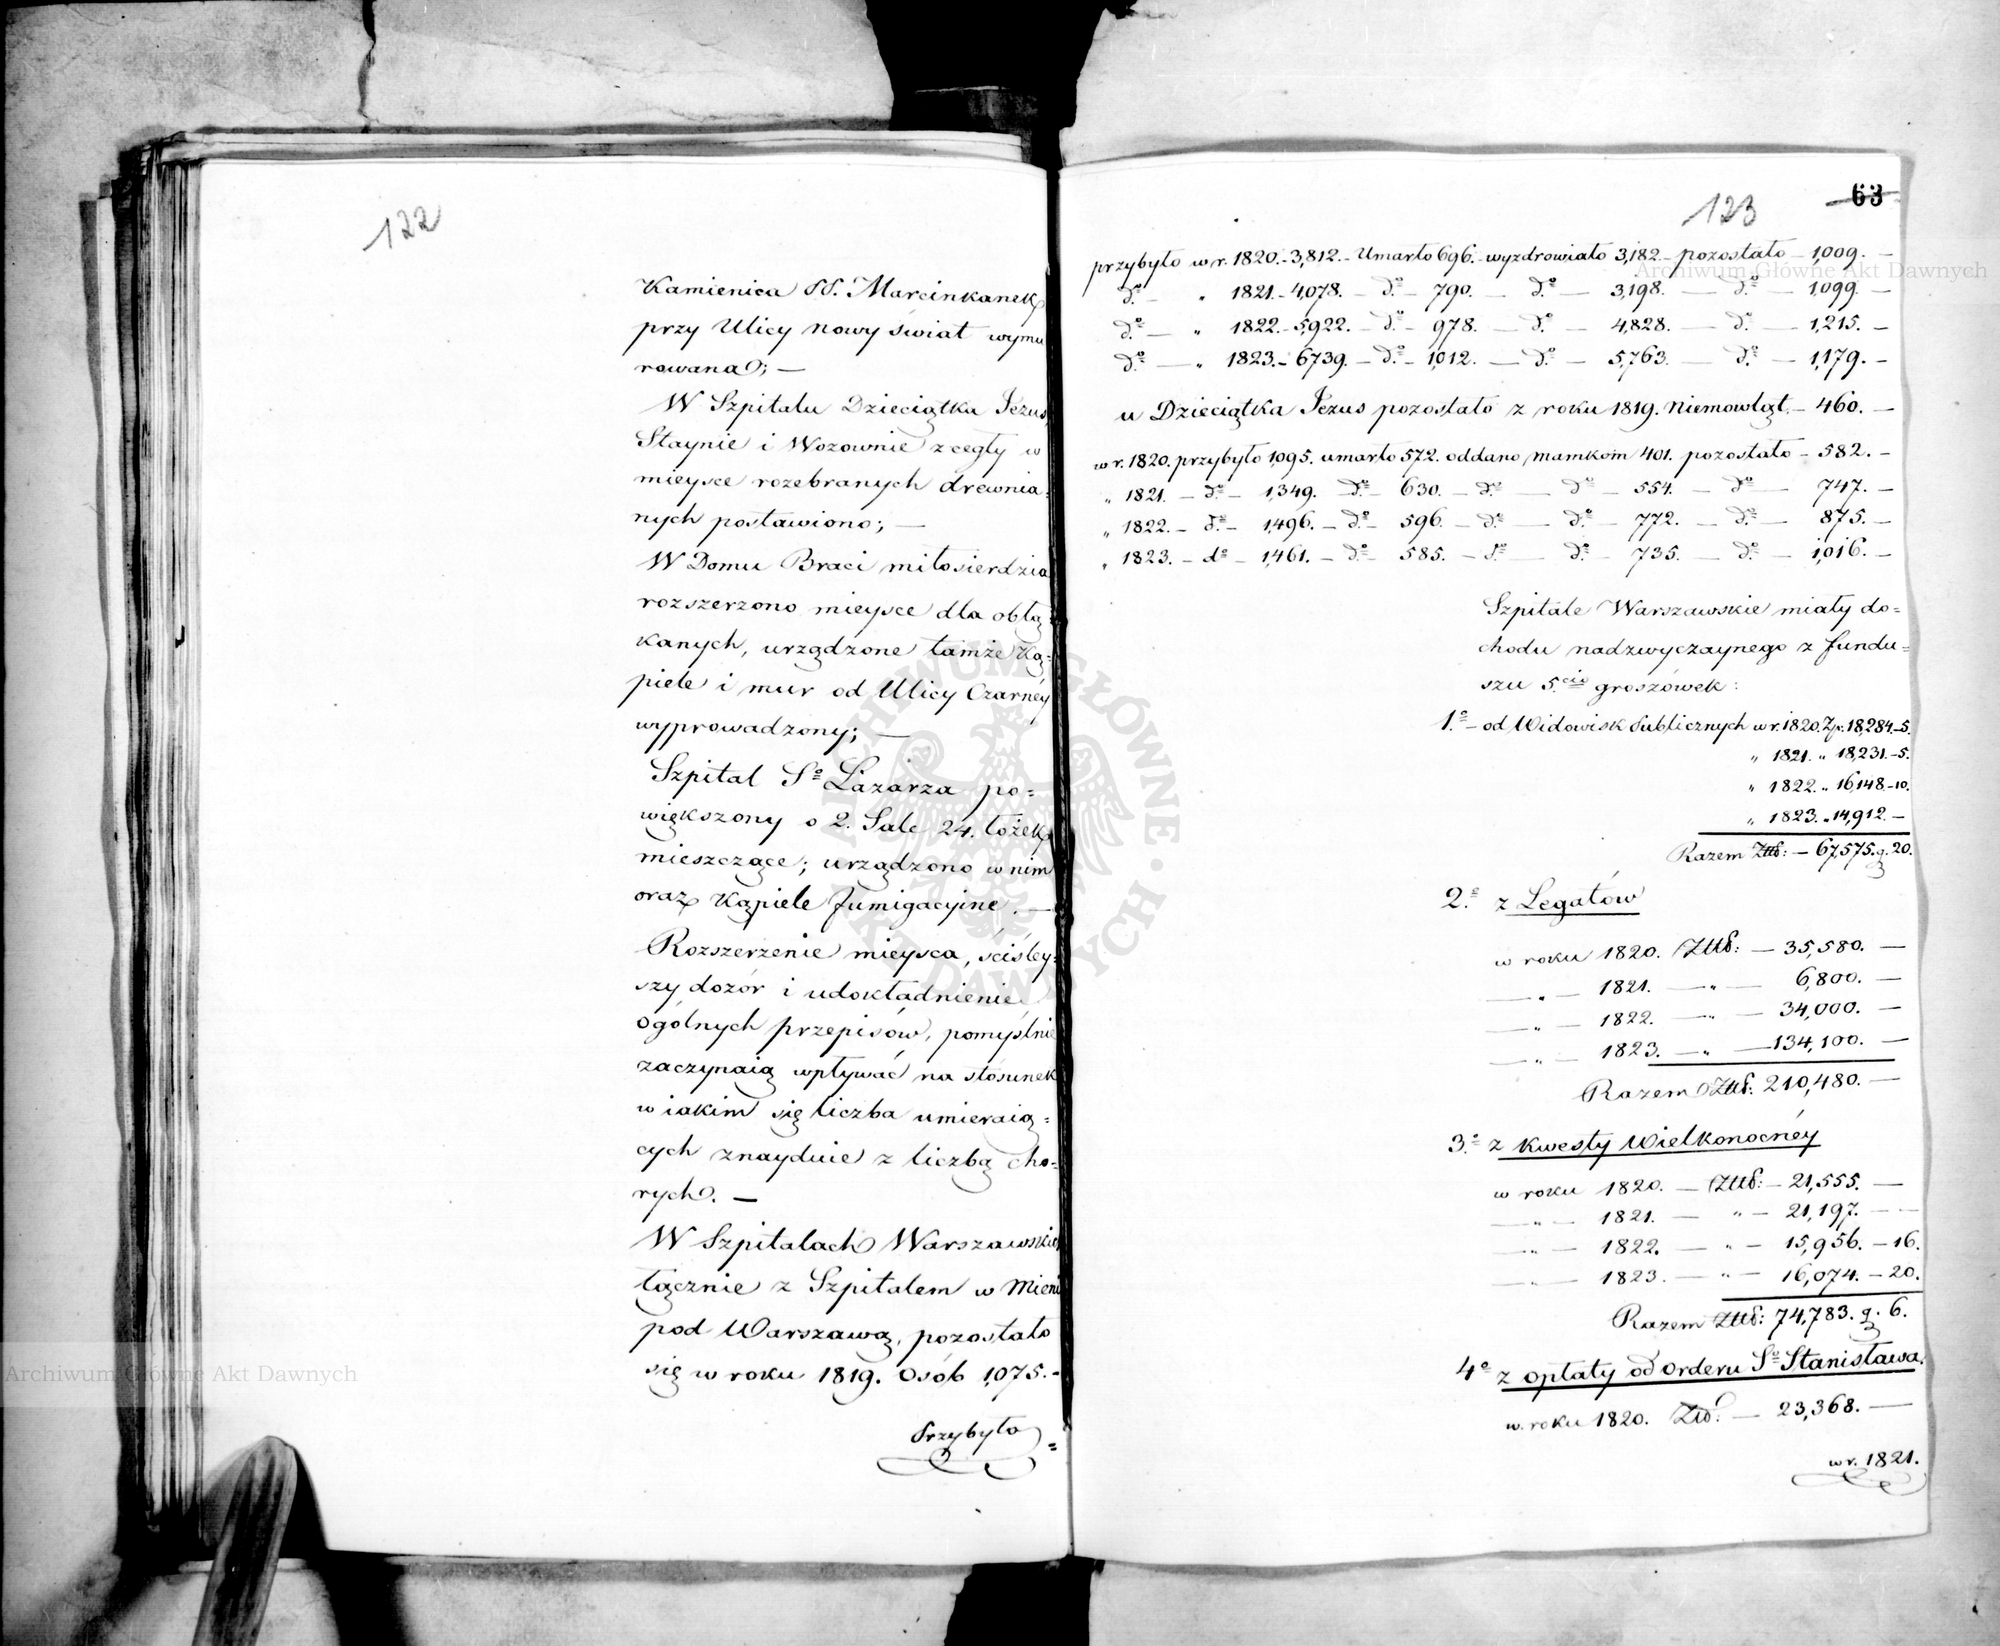 122
Kamienica SS. Marcinkanek
przy Ulicy Nowy Świat wymu
rowana; —
W Szpitalu Dzieciątka Jezus
Staynie i Wozownie z cegły w
mieysce rozebranych drewnia=
nych postawiono; —
W Domu Braci miłosierdzia
rozszerzono mieysce dla obłą
kanych, urządzone tamże Ką=
piele i mur od Ulicy Czarnéy
wyprowadzony; —
Szpital Sº Łazarza po=
większony o 2. Sale 24. łóżek
mieszczące; urządzono w nim
oraz Kąpiele fumigacyine. —
Rozszerzenie mieysca, ściśley=
szy dozór i udokładnienie
ogólnych przepisów, pomyślnie
zaczynaią wpływać na stosunek
w iakim się liczba umieraią=
cych znayduie z liczbą cho=
rych. —
W Szpitalach Warszawskich
łącznie z Szpitalem w Mieni
pod Warszawą, pozostało
się w roku 1819. Osób 1,075. -
Przybyło =
123
63
przybyło w r. 1820. - 3,812. - Umarło 696. - wyzdrowiało 3,182. - pozostało - 1,009. —
dº - " 1821. - 4,078. - dº - 790. — dº — 3,198. — dº — 1,099. —
dº — " 1822. - 5,922. - dº - 978. — dº — 4,828. — dº — 1,215. —
dº — " 1823. - 6739. - dº - 1,012. — dº — 5,763. — dº — 1,179. —
u Dzieciątka Jezus pozostało z roku 1819. Niemowląt. - 460. —
w r. 1820. przybyło 1,095. umarło 572. oddano mamkom 401. pozostało - 582. —
" 1821. - dº - 1,349. dº - 630. - dº — dº — 554. — dº — 747. —
" 1822. - dº - 1,496. - dº - 596. - dº — dº — 772. — dº — 875. —
" 1823. - dº - 1,461. - dº - 585. - dº — dº - 735. — dº - 1,016. —
Szpitale Warszawskie miały do=
chodu nadzwyczaynego z fundu=
szu 5.cio groszówek:
1.º - od Widowisk Publicznych w r. 1820. Zp. 18,284. - 5.
" 1821. " 18,231. - 5.
" 1822. " 16,148. - 10.
" 1823. " 14,912. —
Razem Złł: — 67,575. g. 20.
2.º z Legatów
w roku 1820. Złł: — 35,580. —
— " — 1821. — " — 6,800. —
— " — 1822. — " — 34,000. —
— " — 1823. — " — 134,100. —
Razem Złł: 210,480. —
3.º z kwesty Wielkonocnéy
w roku 1820. — Złł: — 21,555. —
— " — 1821. — " — 21,197. — —
— " — 1822. — " — 15,956. — 16.
— " — 1823. — " — 16,074. — 20.
Razem Złł: 74,783. g. 6.
4º z opłaty od Orderu Sº Stanisława.
w roku 1820. Złł: — 23,368. —
w r. 1821.
Archiwum Główne Akt Dawnych
Archiwum Główne Akt Dawnych
ARCHIWUM GŁÓWNE AKT DAWNYCH